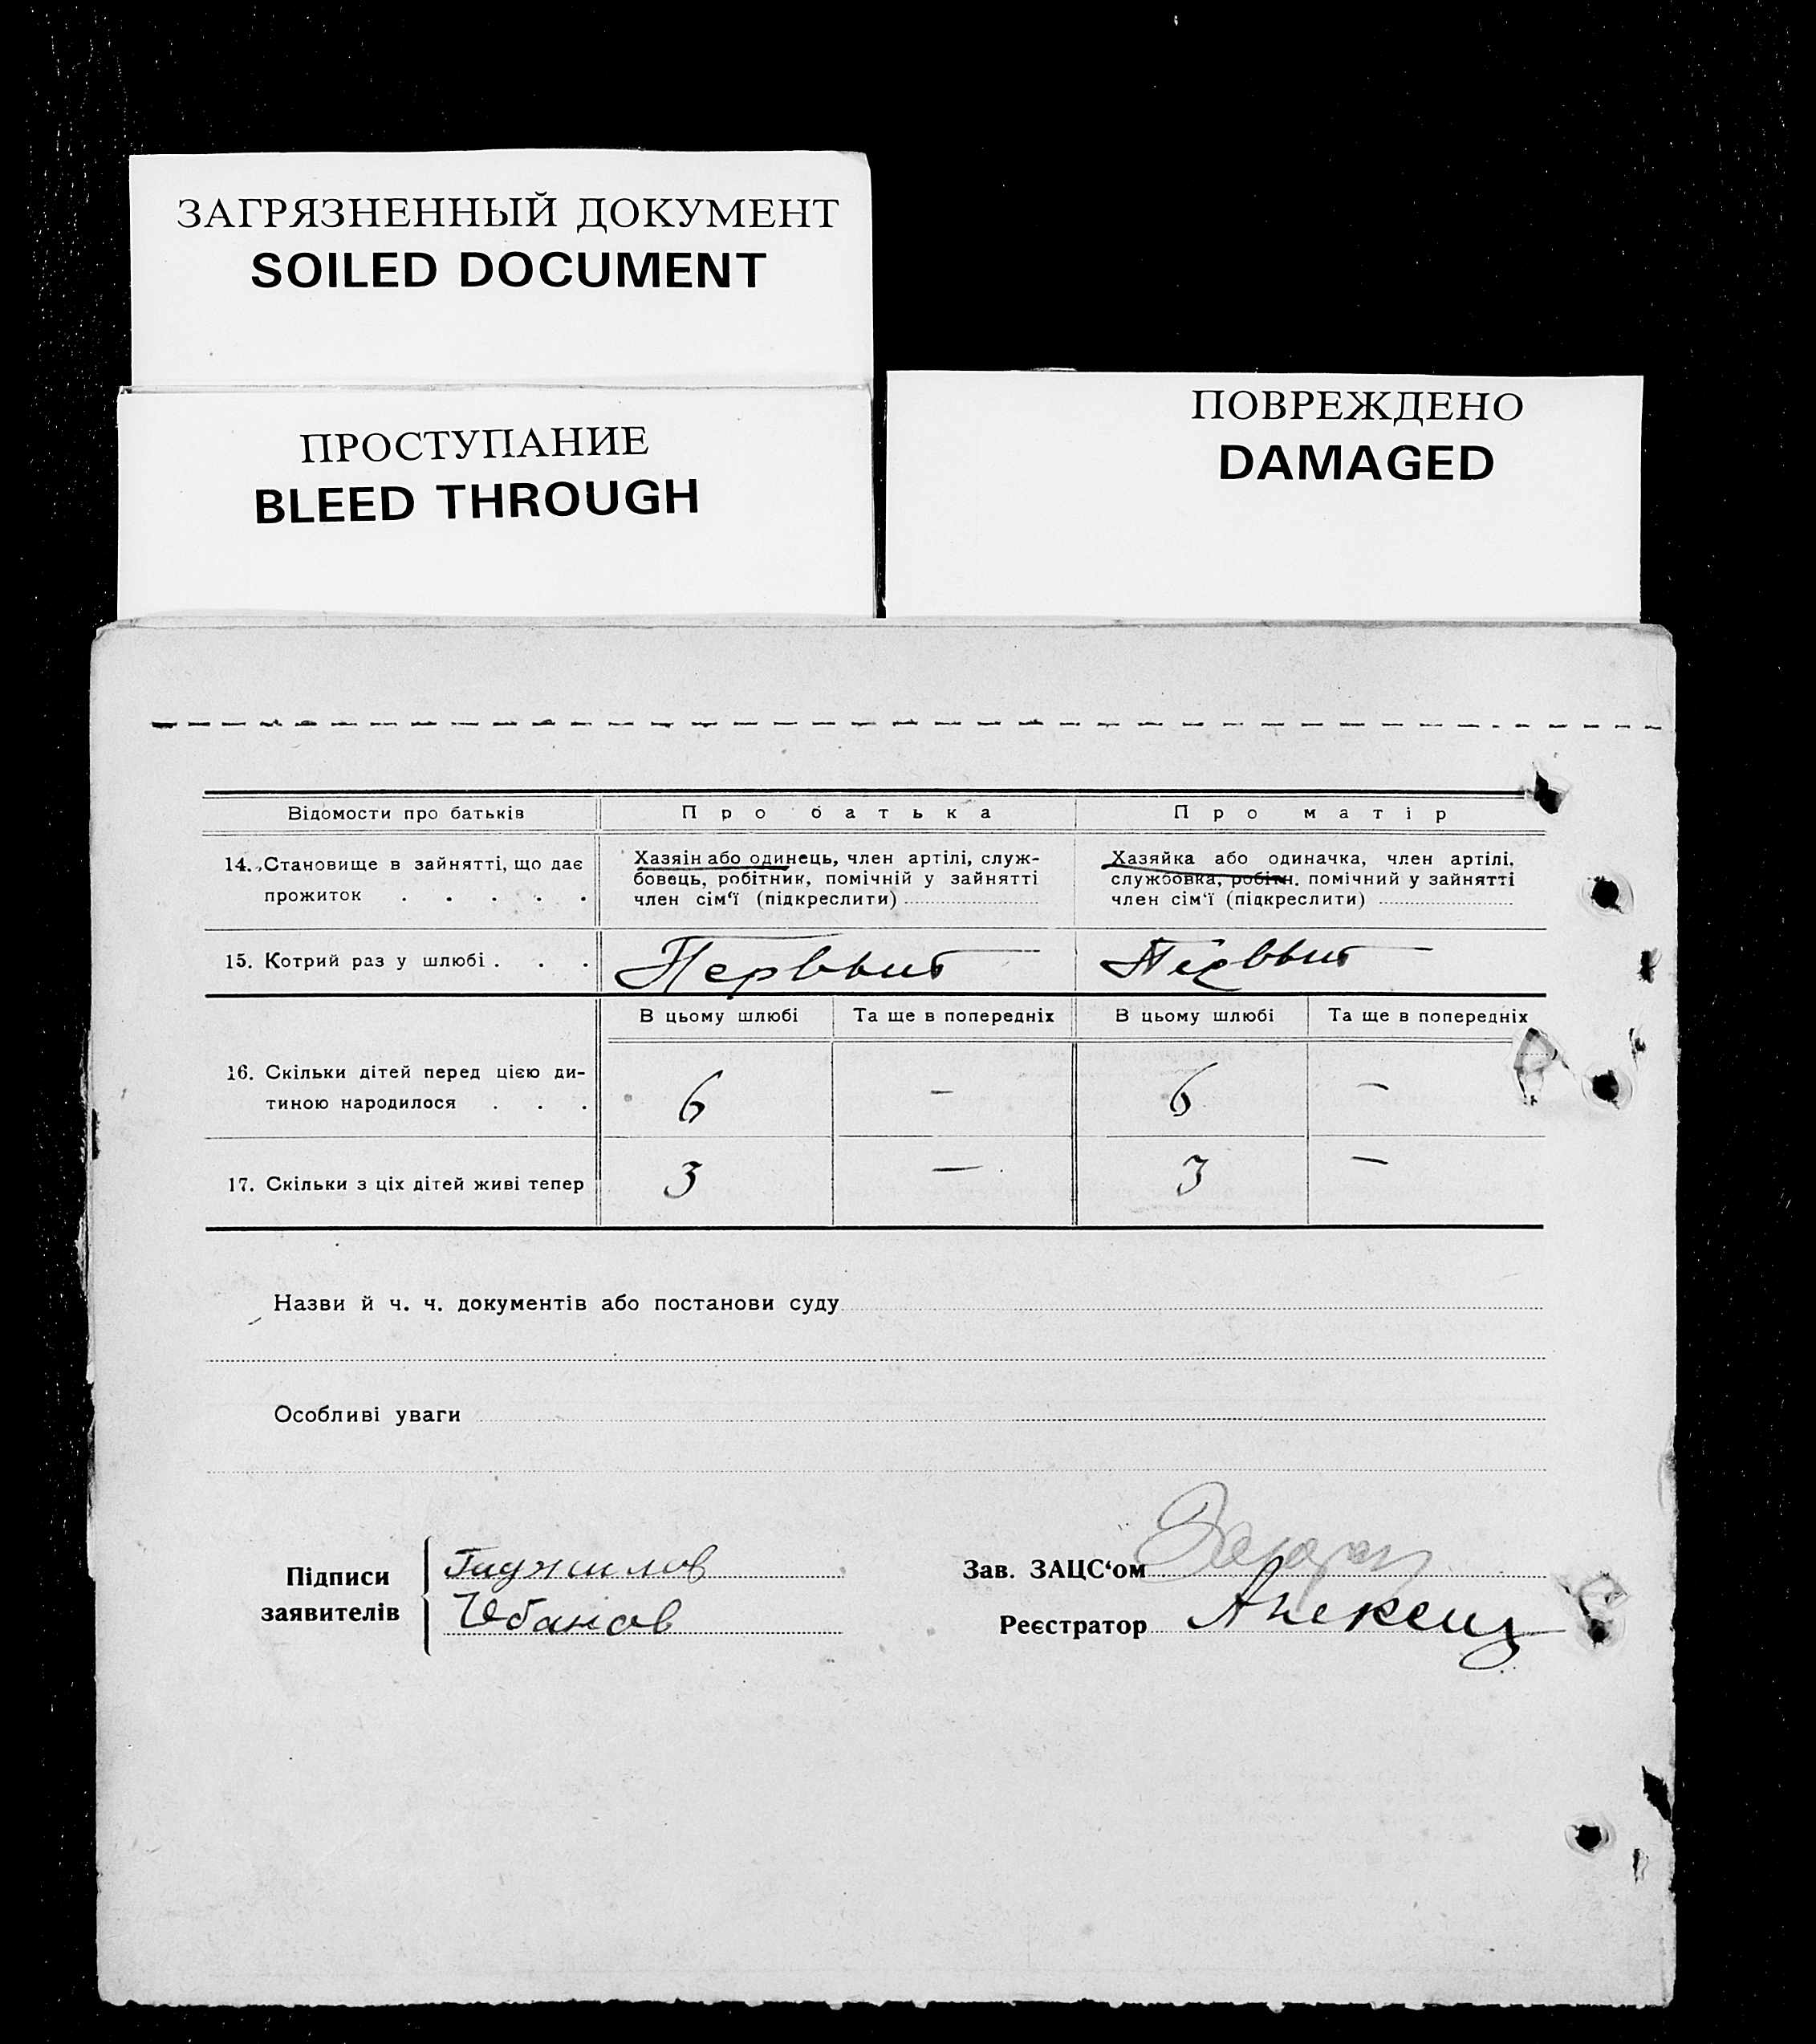 ЗАГРЯЗНЕННЫЙ ДОКУМЕНТ
SOILED DOCUMENT
ПРОСТУПАНИЕ
BLEED THROUGH
ПОВРЕЖДЕНО
DAMAGED
Відомости про батьків Про батька Про матір
14. Становище в зайнятті, що дає прожиток . . . . .
Хазяін або одинець, член артілі, служ-
бовець, робітник, помічній у зайнятті
член сім'ї (підкреслити)
Хазяйка або одиначка, член артілі,
службовка, робітн. помічний у зайнятті
член сім'ї (підкреслити)
15. Котрий раз у шлюбі . . . Первый Первый
В цьому шлюбі Та ще в попередніх В цьому шлюбі Та ще в попередніх
16. Скільки дітей перед цією ди-
тиною народилося . . . 6 – 6 –
17. Скільки з ціх дітей живі тепер 3 – 3 –
Назви й ч. ч. документів або постанови суду
Особливі уваги
Підписи
заявителів
Гаджилов
Чебанов
Зав. ЗАЦС'ом
Реєстратор